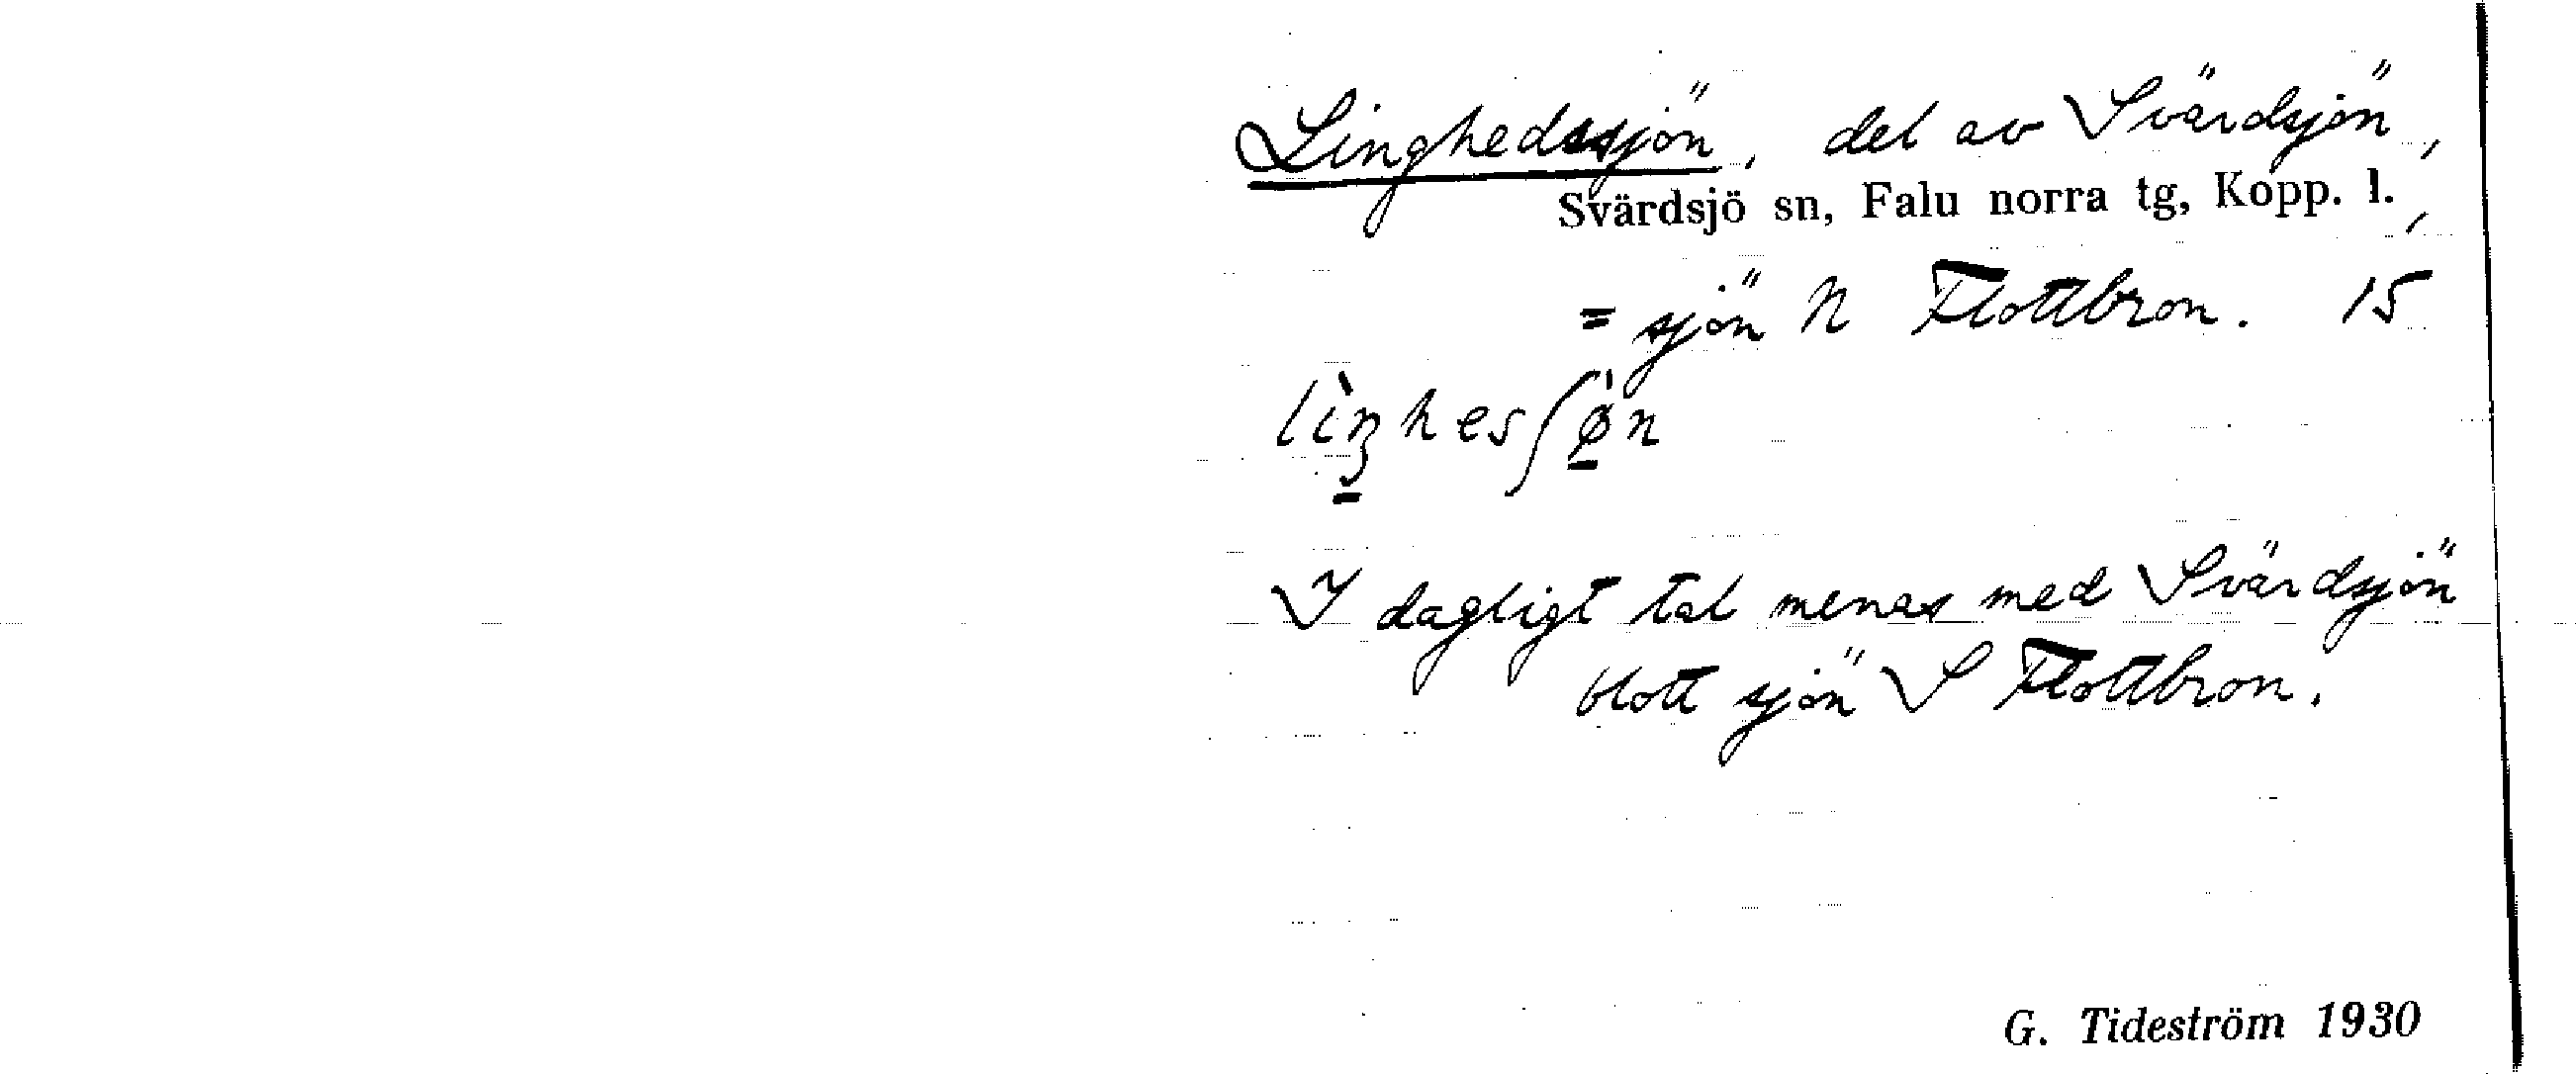 Linghedssjön, del av Svärdsjön,
Svärdsjö sn, Falu norra tg, Kopp. l.,
= sjön N Flottbron. 15
lìŋhesʃø̀n
I dagligt tal menas med Svärdsjön
blott sjön S Flottbron.
G. Tideström 1930